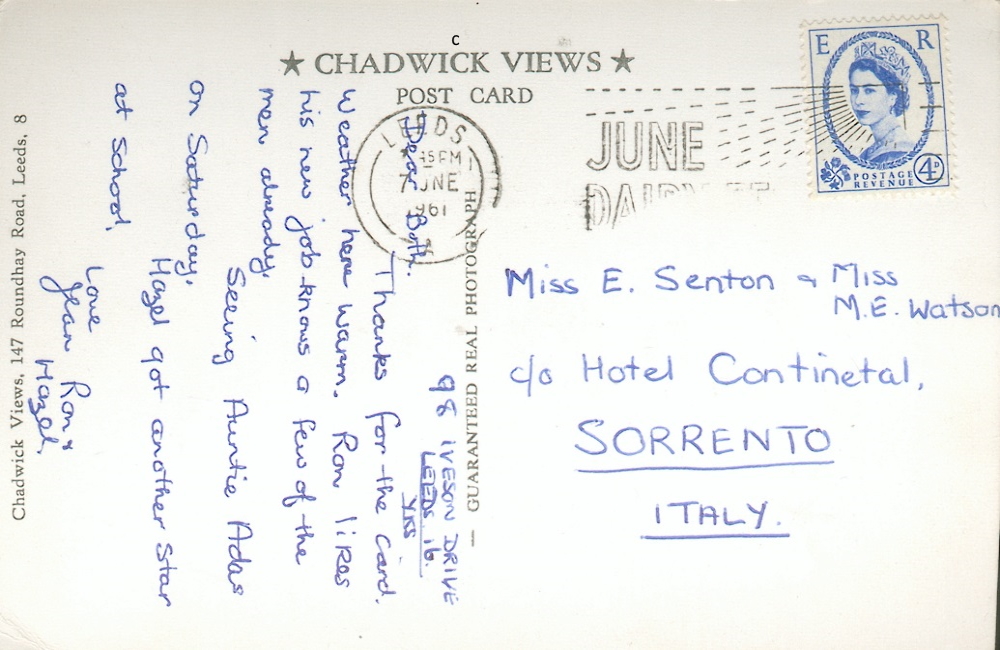 c
★ CHADWICK VIEWS ★
POST CARD
Chadwick Views, 147 Roundhay Road, Leeds, 8
— GUARANTEED REAL PHOTOGRAPH
98 IVESON DRIVE
LEEDS 16.
YKS.
Dear Both.
Thanks for the card.
Weather here warm. Ron likes
his new job - knows a few of the
men already,
Seeing Auntie Adas
on Saturday,
Hazel got another star
at School,
Love
Jean Ron &
Hazel,
LEEDS
45 PM
7 JNE
1961
JUNE
DAIRY
E R
POSTAGE
REVENUE
4D
Miss E. Senton & Miss
M.E. Watson
c/o Hotel Continetal,
SORRENTO
ITALY.